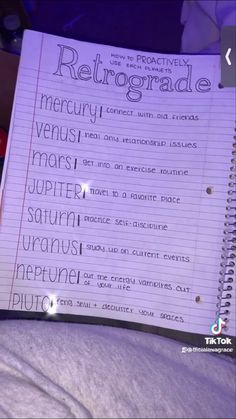 HOW TO PROACTIVELY
USE EACH PLANETS
Retrograde
mercury| connect with old friends
VENUS| heal any relationship issues
mars| get into an exercise routine
JUPITER| travel to a favorite place
saturn| practice self-discipline
URANUS| study up on current events
neptune| cut the energy vampires out
of your life
PLUTO still + declutter your spaces
TikTok